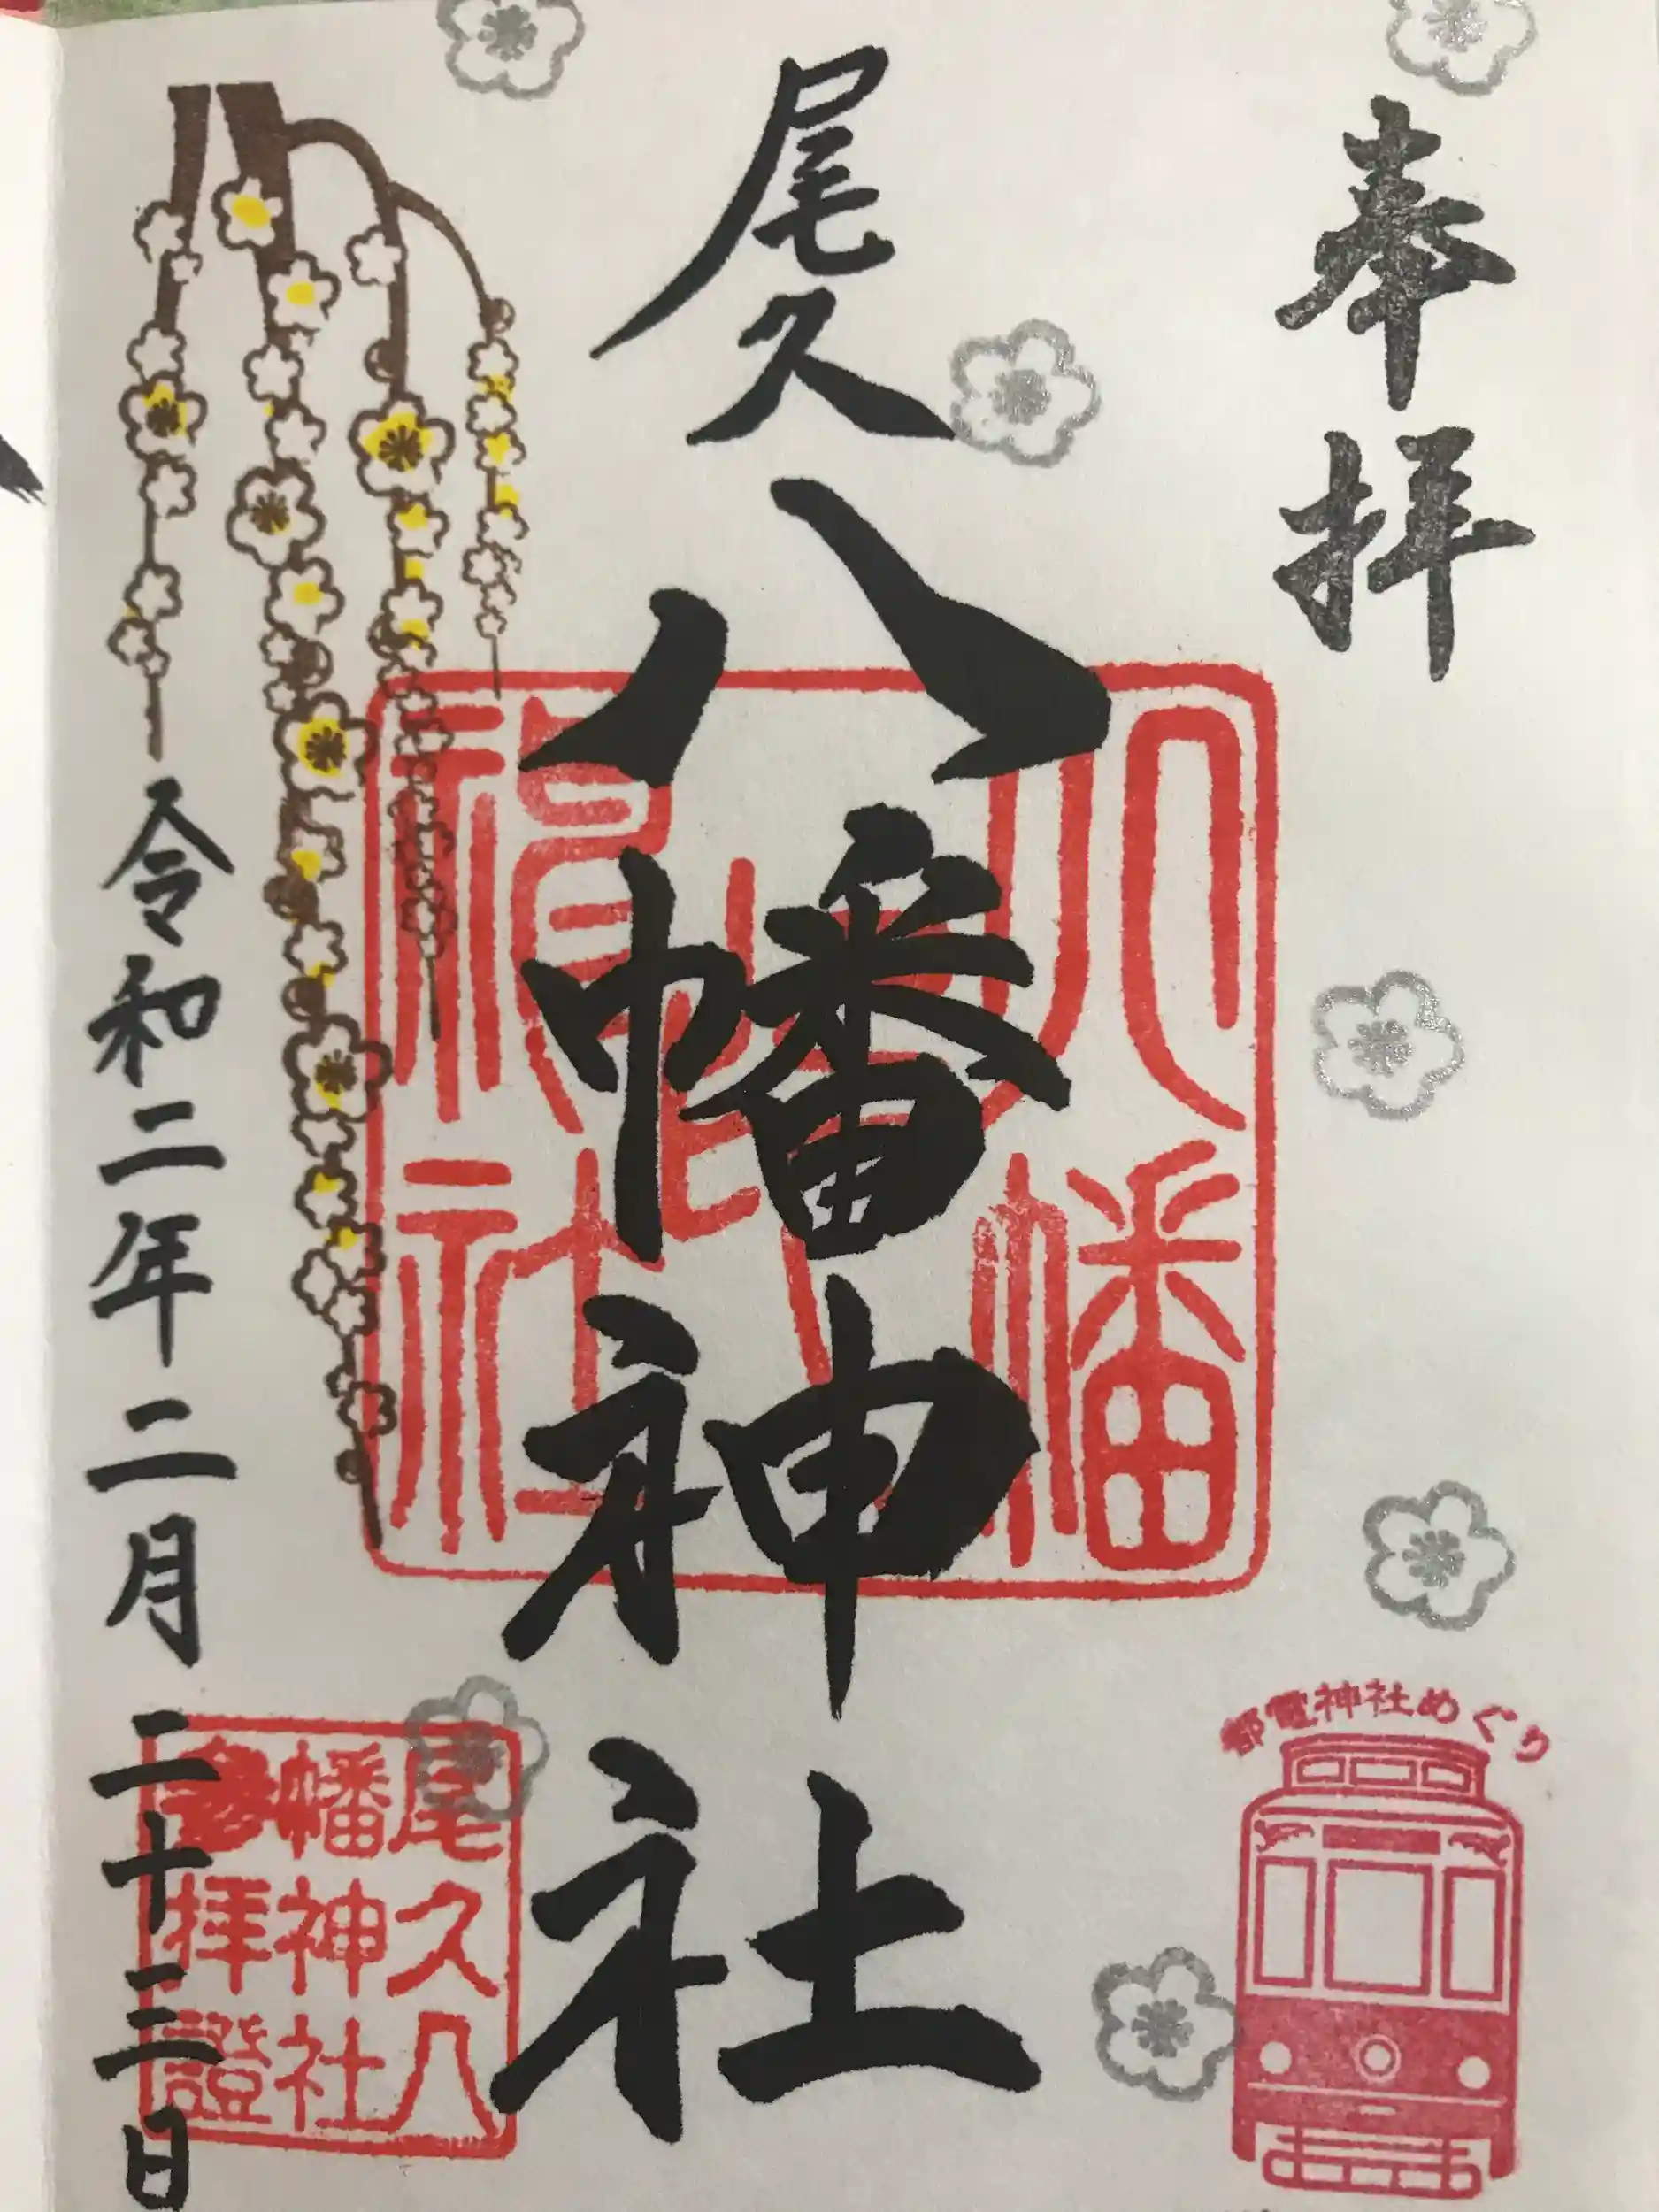 奉拝
都電神社めぐり
尾久八幡神社
八幡神社
尾久八
幡神社
参拝證
令和二年二月二十三日